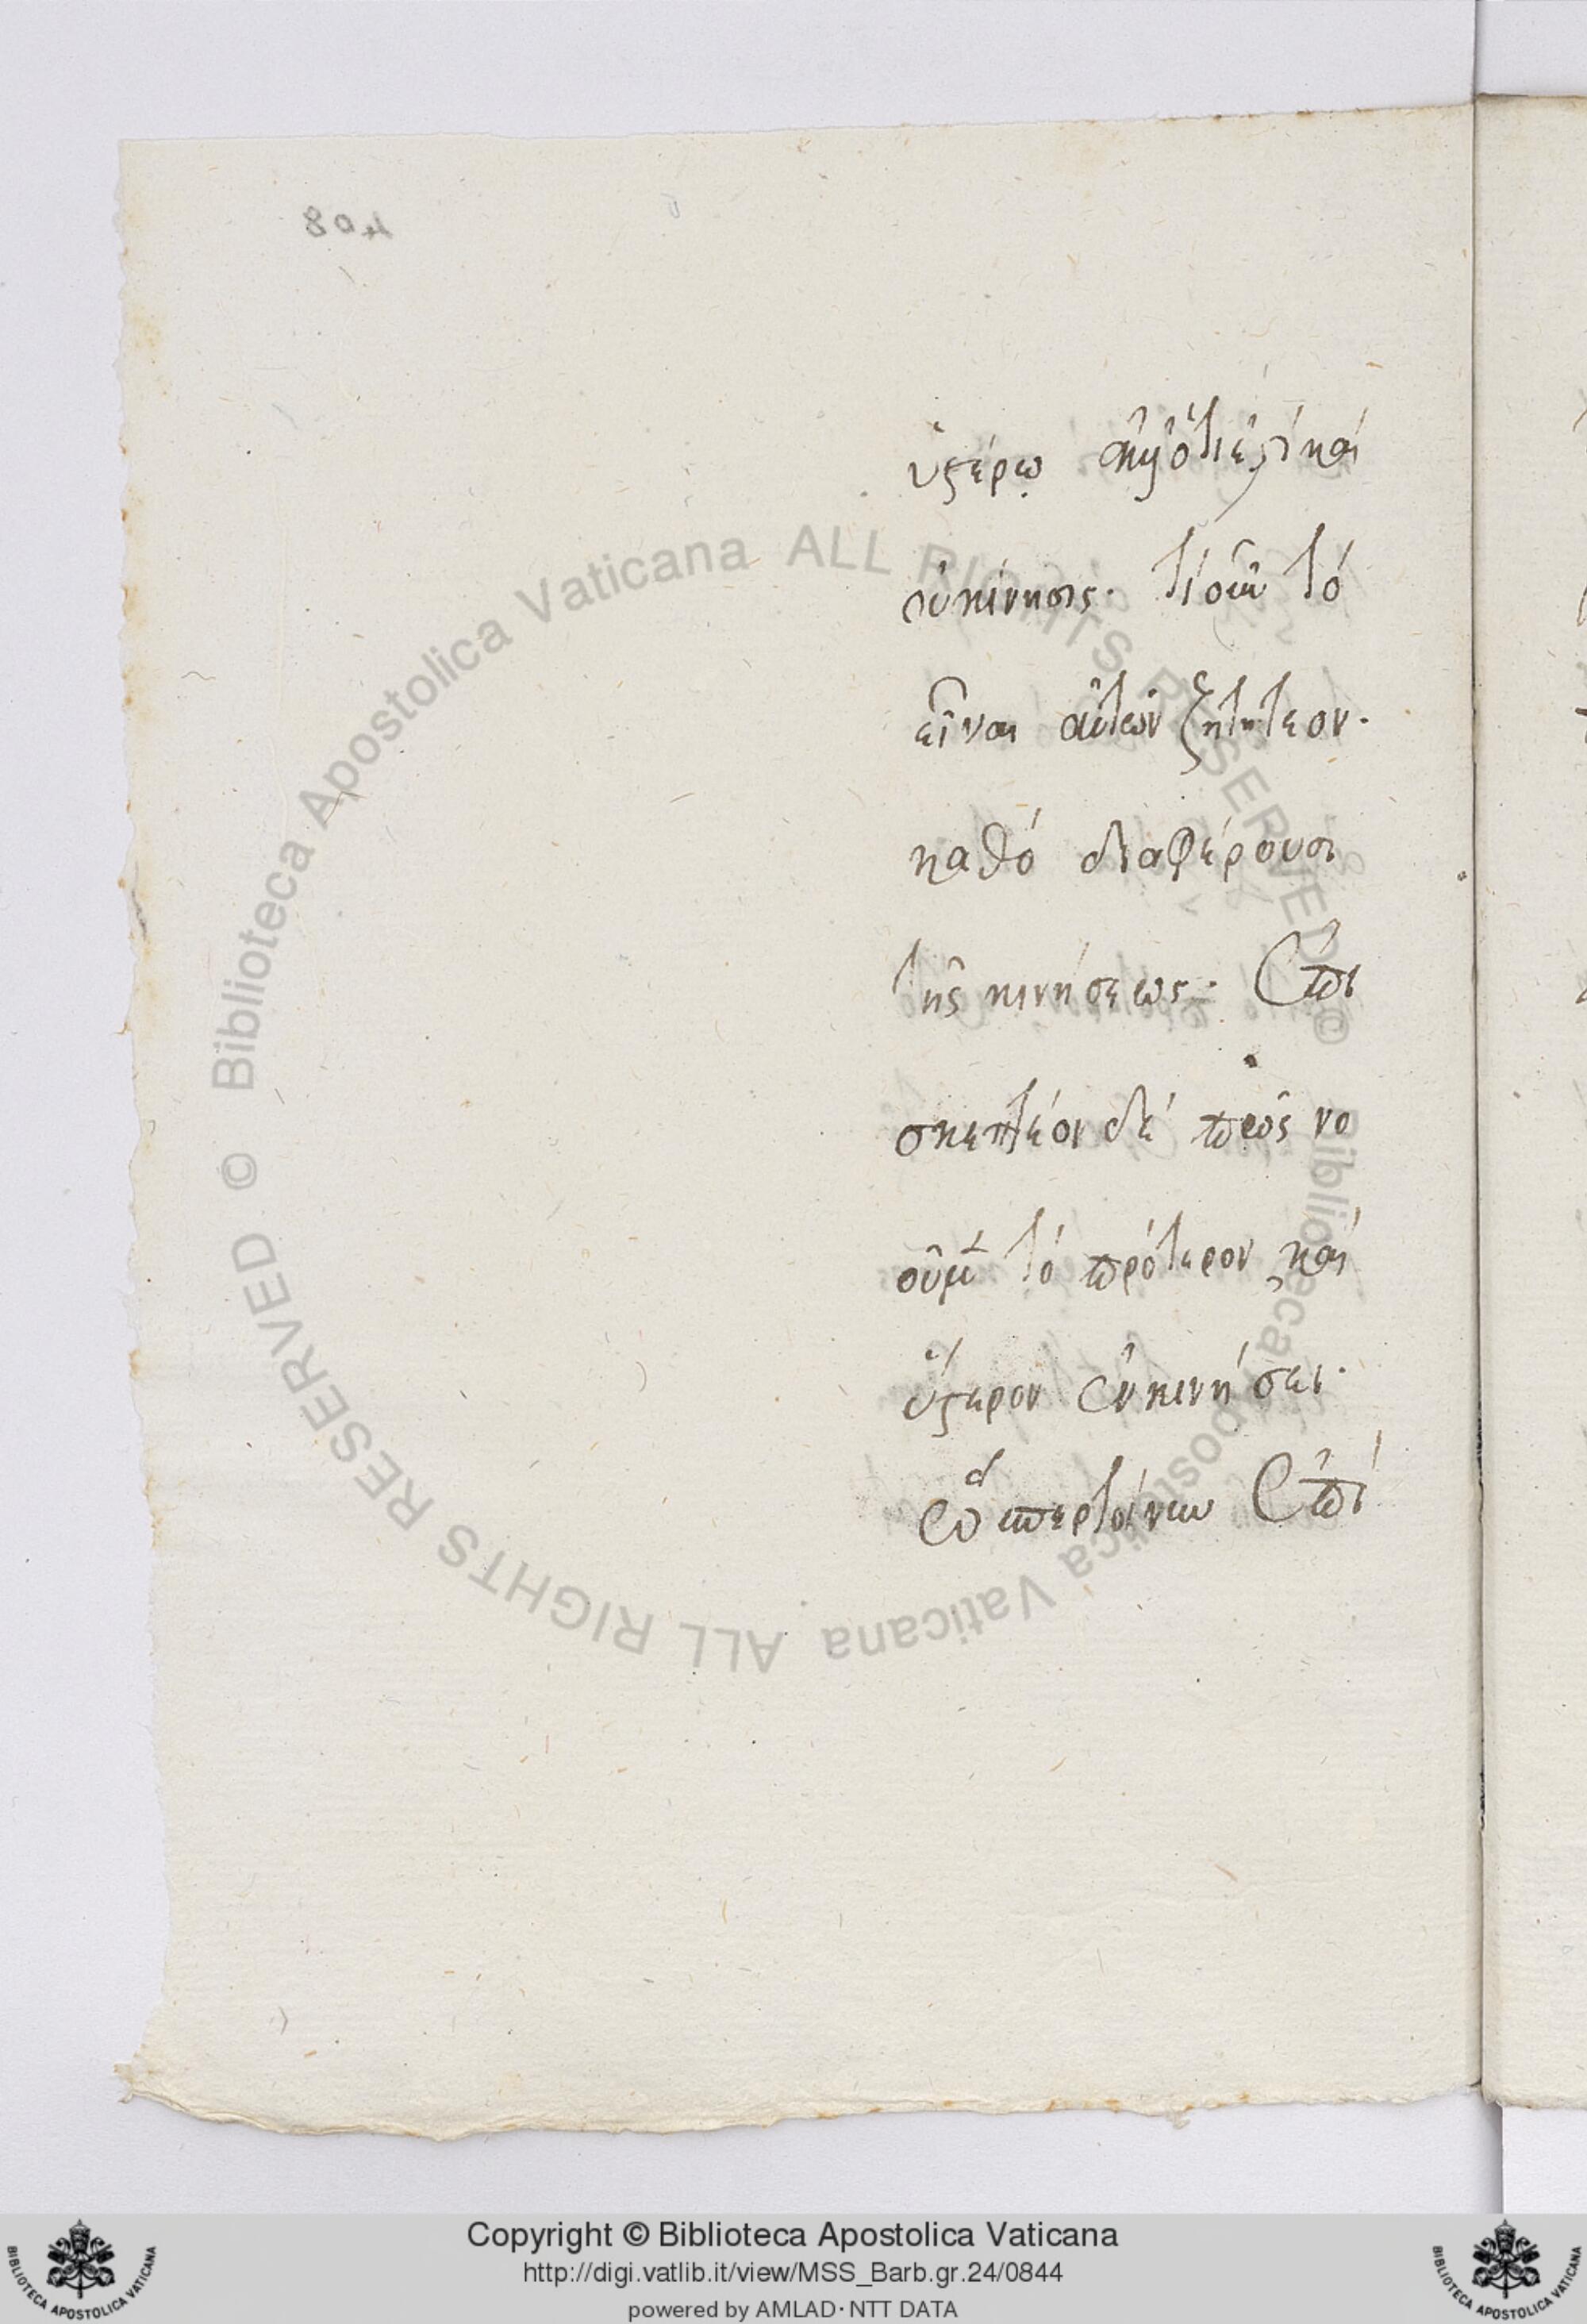 804
ὑστέρῳ ἀκῇ ὅτι ἐστὶ καὶ
οὐ κίνησις. τί οὖν τό
εἶναι αὐτῶν ζητητέον.
καθό διαφέρουσι
τῆς κινήσεως. Ἐπι
σκεπτέον δέ πῶς νο
οῦμεν τό πρότερον, καί
ὕστερον ἐν κινήσει.
Ἐπί
© Biblioteca Apostolica Vaticana ALL RIGHTS RESERVED © Biblioteca Apostolica Vaticana ALL RIGHTS RESERVED
Copyright © Biblioteca Apostolica Vaticana
http://digi.vatlib.it/view/MSS_Barb.gr.24/0844
powered by AMLAD · NTT DATA
BIBLIOTECA APOSTOLICA VATICANA
BIBLIOTECA APOSTOLICA VATICANA